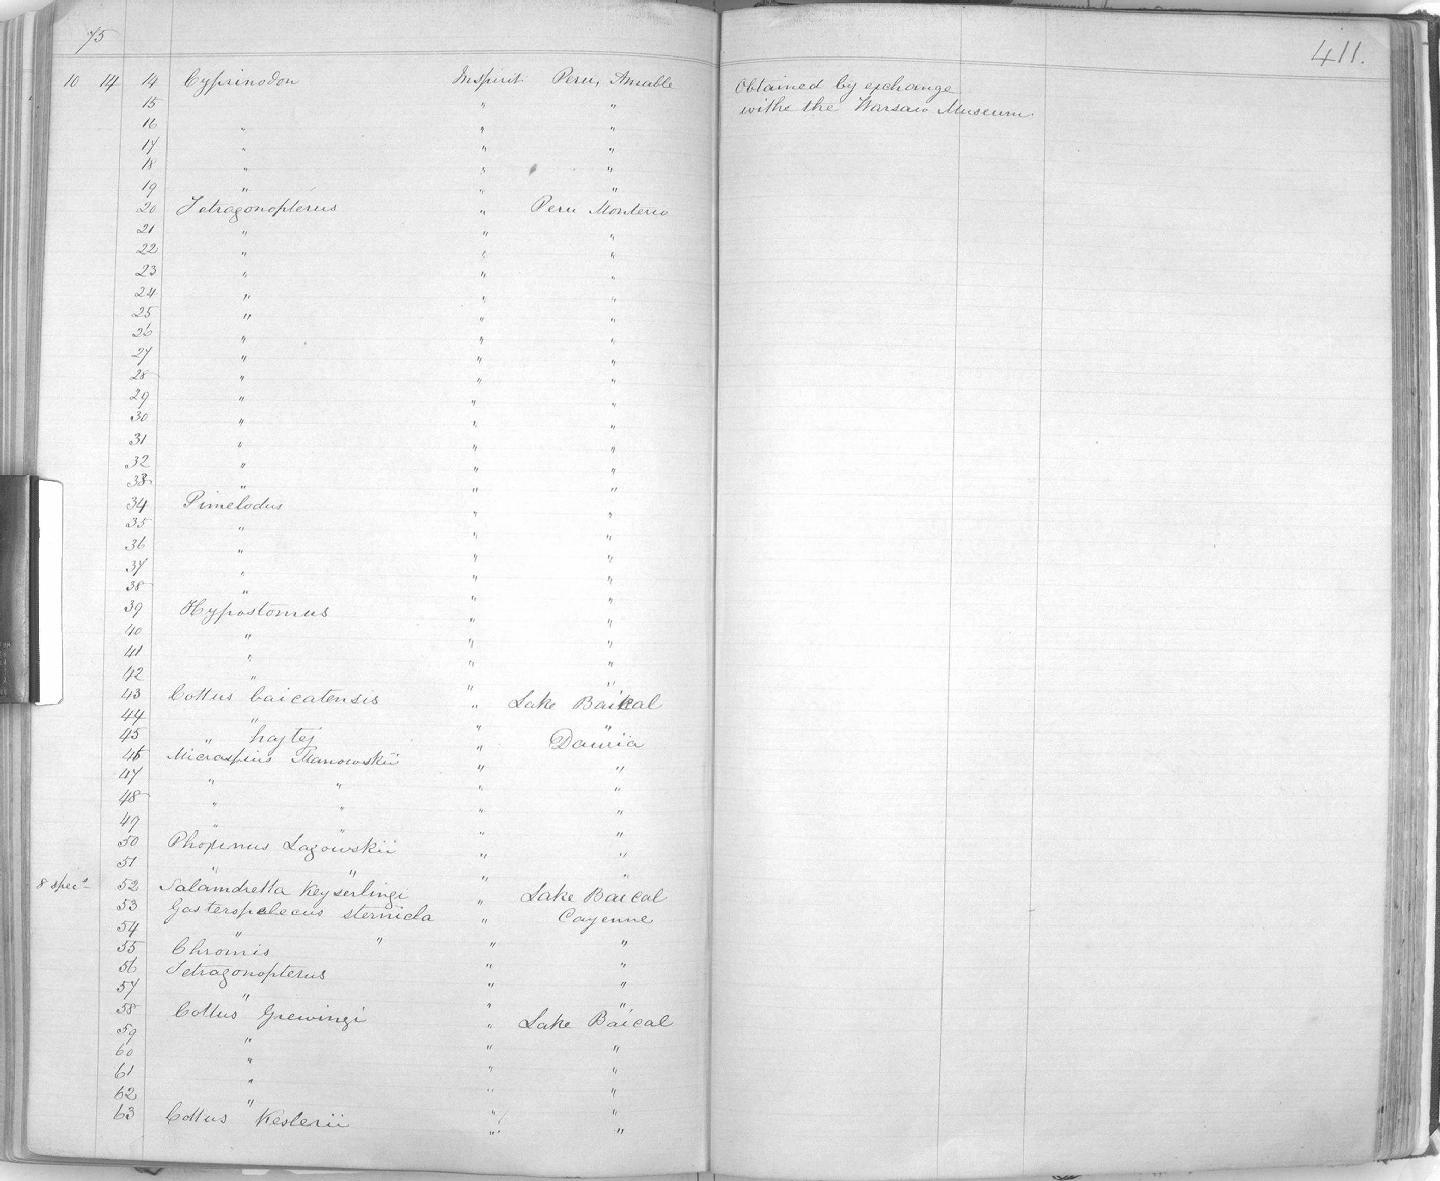 75
411.
10 14 14 Cyprinodon In spirit Peru, Amable Obtained by exchange
15 " " withe the Warsaw Museum.
16 " " "
17 " " "
18 " " "
19 " " "
20 Tetragonopterus " Peru Monterico
21 " " "
22 " " "
23 " " "
24 " " "
25 " " "
26 " " "
27 " " "
28 " " "
29 " " "
30 " " "
31 " " "
32 " " "
33 " " "
34 Pimelodus " "
35 " " "
36 " " "
37 " " "
38 " " "
39 Hypostomus " "
40 " " "
41 " " "
42 " " "
43 Cottus baicatensis " Lake Baikal
44 " " "
45 " hajtej " Dauria
46 Micraspius Tianowskii " "
47 " " " "
48 " " " "
49 " " " "
50 Phoxinus Lagowskii " "
51 " " " "
8 specs 52 Salamdretta Keyserlingi " Lake Baical
53 Gasterspelecus sternicla " Cayenne
54 " " " "
55 Chromis " "
56 Tetragonopterus " "
57 " " "
58 Cottus Grewingi " Lake Baical
59 " " "
60 " " "
61 " " "
62 " " "
63 Cottus Keslerii " "